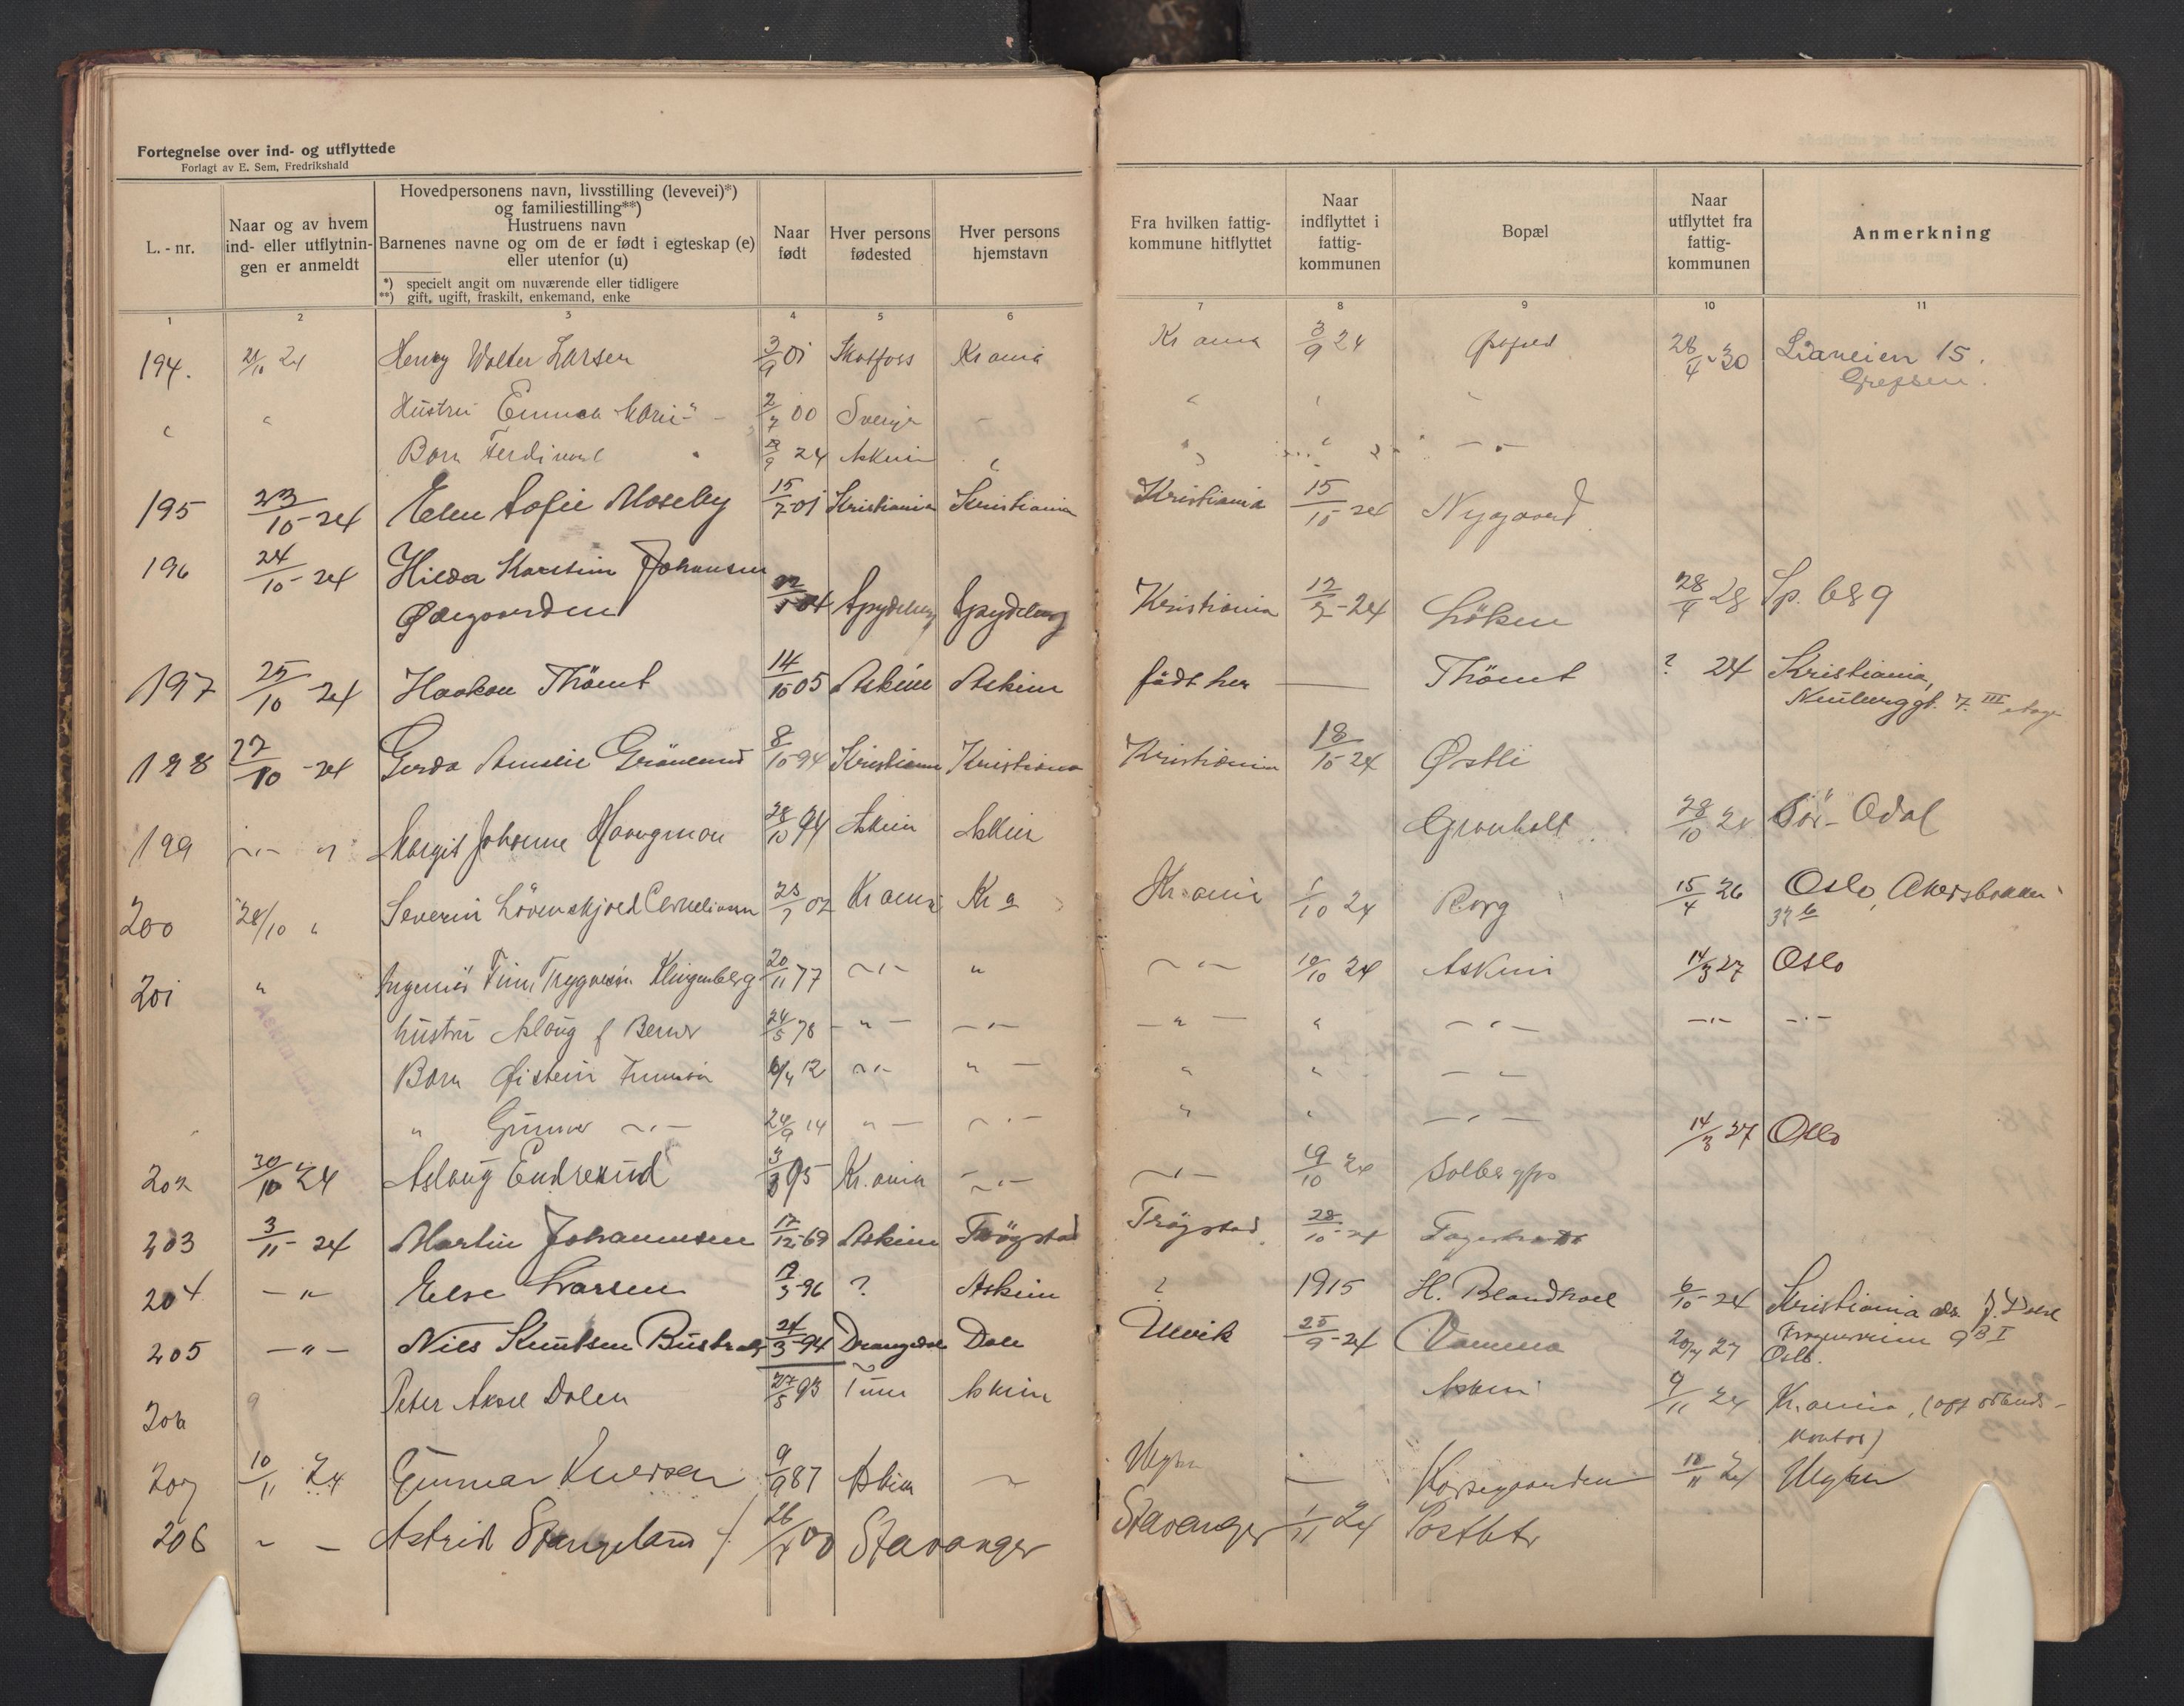 Fortegnelse over ind- og utflyttede
Forlagt av E. Sem, Fredrikshald
L. - nr.
Naar og av hvem
ind- eller utflytnin-
gen er anmeldt
Hovedpersonens navn, livsstilling (levevei)*)
og familiestilling**)
Hustruens navn
Barnenes navne og om de er født i egteskap (e)
eller utenfor (u)
*) specielt angit om nuværende eller tidligere
**) gift, ugift, fraskilt, enkemand, enke
Naar
født
Hver persons
fødested
Hver persons
hjemstavn
Fra hvilken fattig-
kommune hitflyttet
Naar
indflyttet i
fattig-
kommunen
Bopæl
Naar
utflyttet fra
fattig-
kommunen
Anmerkning
1 2 3 4 5 6 7 8 9 10 11
194. 21/10 24 Henry Walter Larsen 3/9 01 Skotfoss Kr ania Kr ania 3/9 24 28/4 30 Lianveien 15.
Grefsen.
" " Hustru Emma Marie 2/7 00 Sverige " "
Barn Ferdinand 24 Askim " " " - " -
195 23/10-24 Elen Sofie Moseby 15/7 01 Kristiania Kristiania Kristiania 15/10-24 Nygaard
196 24/10-24 Hilda Karstin Johansen
Ødegaarden 04 Spydeberg Spydeberg Kristiania 12/2-24 Löken 28/4 28 Sp. 689
197 25/10 24 Haakon Thömt 14/10 05 Askim Askim født her — Thömt ? 24 Kristiania,
Neuberggt. 7. III etage
198 27/10-24 Gerda Amalie Grönlund 8/10-94 Kristiania Kristiania Kristiania 18/10-24 Østli
199 -"- " Margit Johanne Haavgmoen 28/10 94 Askim Askim Gronholt 28/10 24 Sör-Odal
200 28/10 " Severin Lövenskjold Corneliussen 25/7 02 Kr ania Kr a Kr. ania 1/10 24 Borg 15/4 26 Oslo, Akersbakken
37 b
201 " Ingeniör Finn Trygvesön Klingenberg 20/11 77 -"- " -"- 10/10 24 Askim 14/3 27 Oslo
Hustru Aslaug f Berner 24/5 78 - " - -"- - " - " - " - -"- -"-
Barn Øistein Finnsön 6/4 12 -"- " - " " - " -
" Gunnar -"- 24/9 14 " - -"- " " - " - 14/3 27 Oslo
202 30/10 24 Aslaug Endresrud 3/8 95 Kr. ania -"- -"- 19/10 24 Solbergfos
203 3/11-24 Martin Johannesen 17/12-69 Askim Trögstad Trögstad 28/10-24
204 -"- Else Larsen 17/3-96 ? Askim ? 1915 H. 6/10-24 Kristiania
205 -"- Niels Knutsen 24/3-94 Drangedal Dale Ulvik 25/9-24 Vamma 20/4 27 9 B I
Oslo.
206 9 Peter Aksel Dalen 27/5 93 Tune Askim Askim 9/11 24 Kr. ania,
kontor)
207 10/11 24 Gunnar Iversen 9/9 87 Askim — — Korsegaarden 10/11 24
208 - — Astrid Stangeland 26/ 00 Stavanger Stavanger 1/11 24 Postbtr